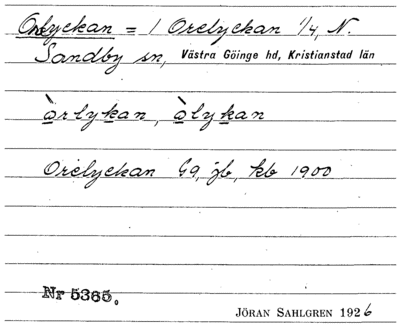 Orelyckan = 1 Orelyckan 1/4, N.
Sandby sn, Västra Göinge hd, Kristianstad län
òrlykan, òlykan
Orelyckan G9, jb, kb 1900
Nr 5365.
JÖRAN SAHLGREN 1926